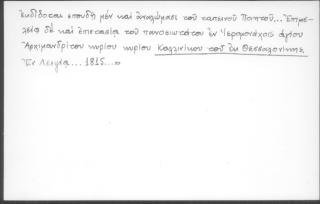 ἐκδίδοται σπουδῇ μὲν καὶ ἀναλώμασι τοῦ ταπεινοῦ Ποιητοῦ... Ἐπιμε-
λείᾳ δὲ καὶ ἐπιστασίᾳ τοῦ πανοσιωτάτου ἐν Ἱερομονάχοις ἁγίου
Ἀρχιμανδρίτου κυρίου κυρίου Καλλινίκου τοῦ ἐκ Θεσσαλονίκης.
Ἐν Λειψίᾳ... 1815...»